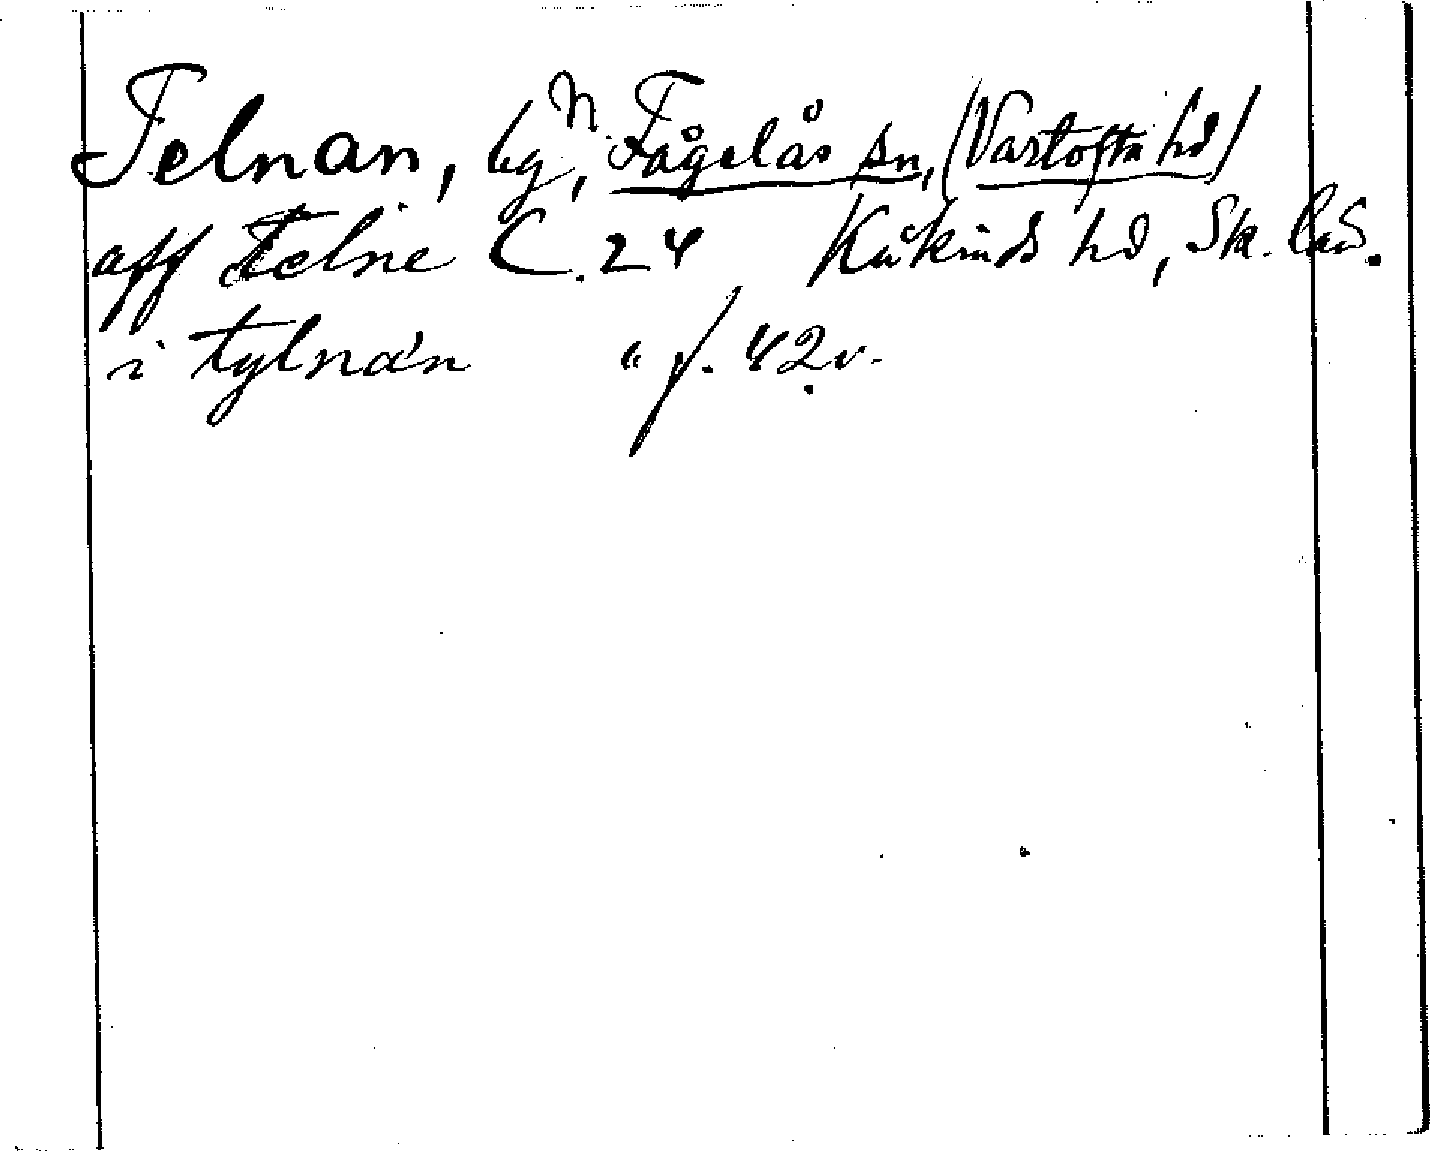 Felnan, by, N. Fågelås sn, (Vartofta hd)
aff telne C. 24 Kåkinds hd, Sk. län.
i tylnan " f. 42v.